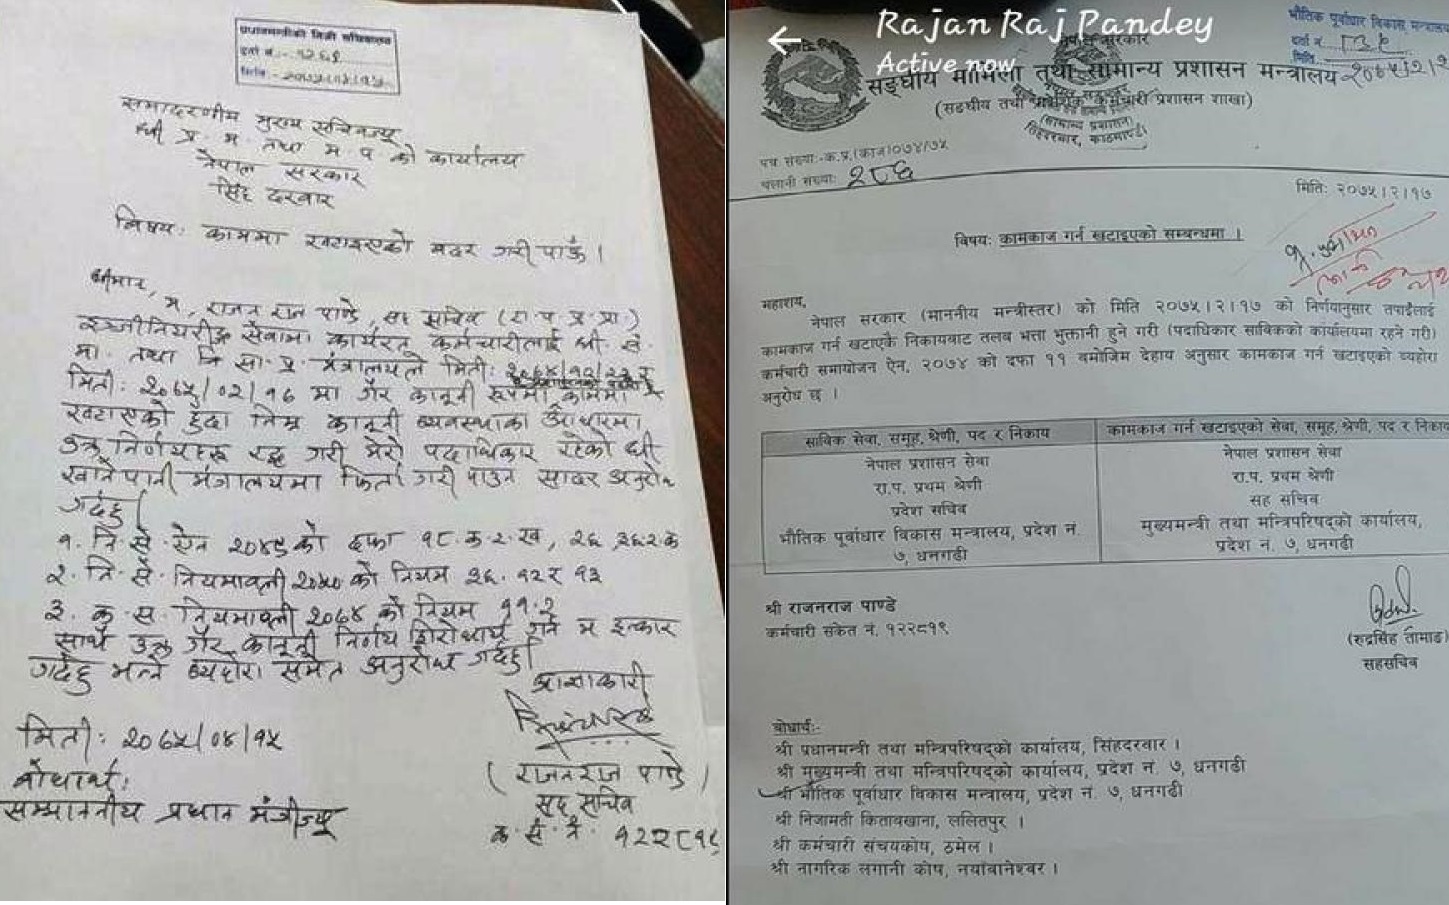 प्रधानमन्त्रीको निजी सचिवालय
दर्ता नं.
मिति
समादरणीय मुख्य सचिवज्यू
श्री प्र. म. तथा म. प. को कार्यालय
नेपाल सरकार
सिंह दरवार
विषय: काममा खटाइएको बदर गरी पाऊँ ।
श्रीमान, म, राजन राज पाण्डे, सह सचिव (रा. प. प्र. प्रा.)
इञ्जीनियरीङ्ग सेवामा कार्यरत कर्मचारीलाई श्री सं.
मा. तथा सा. प्र. मंत्रालयले मिती: २०७४/१२/२३ र
मिती: २०७५/०२/१६ मा गैर कानूनी रूपमा काममा
खटाएको हुँदा निम्न कानूनी व्यवस्थाका आधारमा
उक्त निर्णयहरू रद्द गरी मेरो पदाधिकार रहेको श्री
खानेपानी मंत्रालयमा फिर्ता गरी पाउन सादर अनुरोध
गर्दछु
१. नि. से. ऐन २०४९ को दफा १८.क.२.ख, २६, ३६.२.क
२. नि. से. नियमावली २०५० को नियम ३६. १२ र १३
३. क. स. नियमावली २०७४ को नियम ११.२
साथै उक्त गैर कानूनी निर्णय शिरोधार्य गर्न म इन्कार
गर्दछु भन्ने व्यहोरा समेत अनुरोध गर्दछु
आज्ञाकारी
मिती: २०७५/०४/१५
(राजनराज पाण्डे)
बोधार्थ:
सह सचिव
सम्माननीय प्रधान मंत्रीज्यू
क. सं. नं. १२२८१९
Rajan Raj Pandey
Active now
भौतिक पूर्वाधार विकास मन्त्रालय
दर्ता नं
मिति २०७५|२|२
नेपाल सरकार
सङ्घीय मामिला तथा सामान्य प्रशासन मन्त्रालय
(सङघीय तथा प्रादेशिक कर्मचारी प्रशासन शाखा)
(सामान्य प्रशासन)
सिंहदरवार, काठमाण्डौ
पत्र संख्याः-क.प्र.(काज)०७४/७५
चलानी संख्याः २८६
मितिः २०७५|२|१७
विषयः कामकाज गर्न खटाइएको सम्बन्धमा ।
महाशय,
नेपाल सरकार (माननीय मन्त्रीस्तर) को मिति २०७५|२|१७ को निर्णयानुसार तपाईंलाई
कामकाज गर्न खटाएकै निकायबाट तलब भत्ता भुक्तानी हुने गरी (पदाधिकार साविकको कार्यालयमा रहने गरी)
कर्मचारी समायोजन ऐन, २०७४ को दफा ११ बमोजिम देहाय अनुसार कामकाज गर्न खटाइएको व्यहोरा
अनुरोध छ ।
साविक सेवा, समूह, श्रेणी, पद र निकाय
कामकाज गर्न खटाइएको सेवा, समूह, श्रेणी, पद र निकाय
नेपाल प्रशासन सेवा
रा.प. प्रथम श्रेणी
प्रदेश सचिव
भौतिक पूर्वाधार विकास मन्त्रालय, प्रदेश नं.
७, धनगढी
नेपाल प्रशासन सेवा
रा.प. प्रथम श्रेणी
सह सचिव
मुख्यमन्त्री तथा मन्त्रिपरिषद्को कार्यालय,
प्रदेश नं. ७, धनगढी
श्री राजनराज पाण्डे
कर्मचारी संकेत नं. १२२८१९
(रुद्रसिंह तामाङ)
सहसचिव
बोधार्थः-
श्री प्रधानमन्त्री तथा मन्त्रिपरिषद्को कार्यालय, सिंहदरवार ।
श्री मुख्यमन्त्री तथा मन्त्रिपरिषद्को कार्यालय, प्रदेश नं. ७, धनगढी
श्री भौतिक पूर्वाधार विकास मन्त्रालय, प्रदेश नं. ७, धनगढी
श्री निजामती किताबखाना, ललितपुर ।
श्री कर्मचारी संचयकोष, ठमेल ।
श्री नागरिक लगानी कोष, नयाँबानेश्वर ।